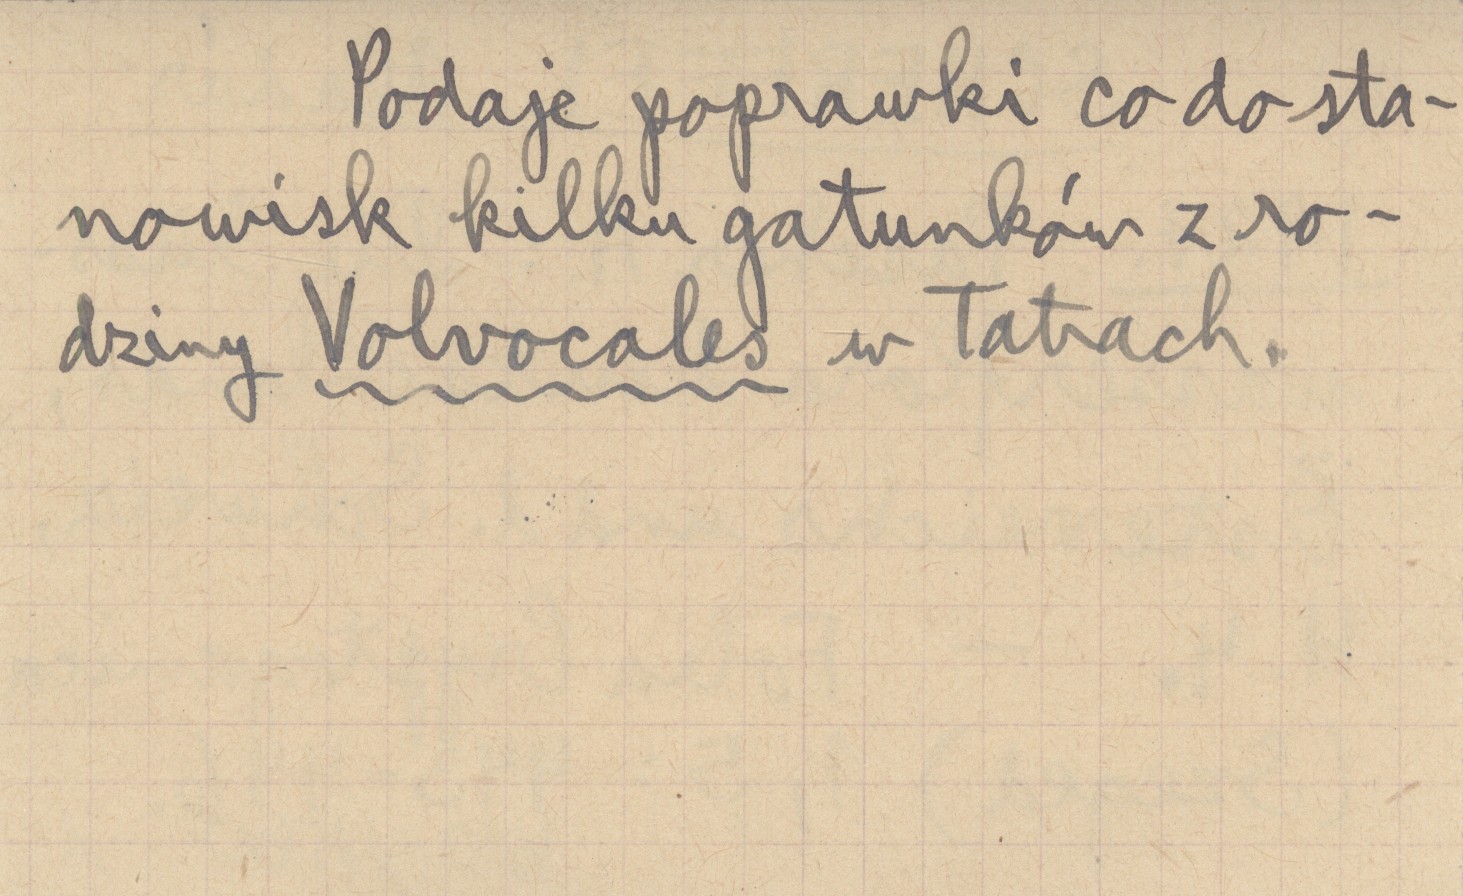 Podaje poprawki co do sta-
nowisk kilku gatunków z ro-
dziny Volvocales w Tatrach.